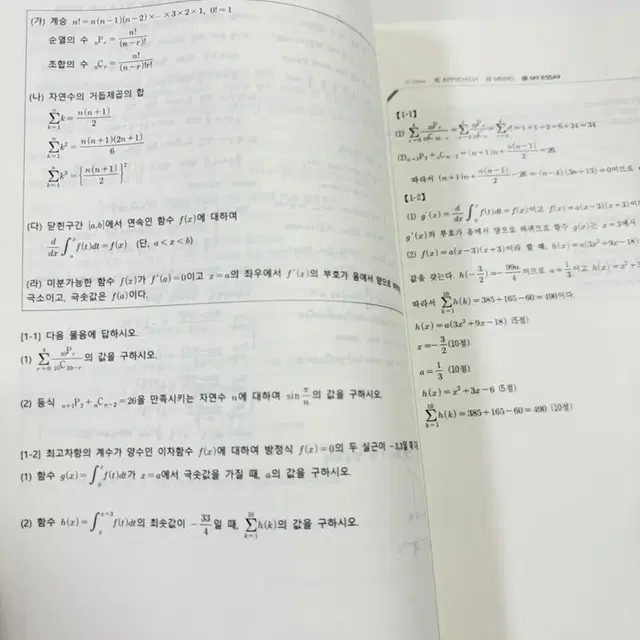 (가) 계승 n!=n(n-1)(n-2)×⋯×3×2×1, 0!=1
순열의 수 ₙPᵣ = n!/(n-r)!
조합의 수 ₙCᵣ = n!/((n-r)!r!)
(나) 자연수의 거듭제곱의 합
∑_{k=1}^{n} k = n(n+1)/2
∑_{k=1}^{n} k² = n(n+1)(2n+1)/6
∑_{k=1}^{n} k³ = {n(n+1)/2}²
(다) 닫힌구간 [a,b]에서 연속인 함수 f(x)에 대하여
d/dx ∫_a^x f(t)dt = f(x) (단, a<x<b)
(라) 미분가능한 함수 f(x)가 f'(a)=0이고 x=a의 좌우에서 f'(x)의 부호가 음에서 양으로
극소이고, 극솟값은 f(a)이다.
[1-1] 다음 물음에 답하시오.
(1) ∑_{r=0}^{4} ₁₀Pᵣ/₁₀C₁₀₋ᵣ 의 값을 구하시오.
(2) 등식 ₙ₊₁P₂+ₙCₙ₋₂=26을 만족시키는 자연수 n에 대하여 sin π/n 의 값을 구하시오.
[1-2] 최고차항의 계수가 양수인 이차함수 f(x)에 대하여 방정식 f(x)=0의 두 실근이 -3,3일 때
(1) 함수 g(x)=∫_0^x f(t)dt가 x=a에서 극솟값을 가질 때, a의 값을 구하시오.
(2) 함수 h(x)=∫_x^{x+3} f(t)dt의 최솟값이 -33/4일 때, ∑_{k=1}^{10} h(k)의 값을 구하시오.
APPROACH MEMO MY ESSAY
【1-1】
=1+1+2+6+24=34
(2) ₙ₊₁P₂+ₙCₙ₋₂=(n+1)n+n(n-1)/2=26
따라서 (n+1)n+n(n-1)/2-26=(n-4)(3n+13)=0이므로
【1-2】
(1) g'(x)=d/dx ∫_0^x f(t)dt=f(x)이고 f(x)=a(x-3)(x+3)이
g'(x)의 부호가 음에서 양으로 바뀌므로 함수 g(x)는 x=3에서
(2) f(x)=a(x-3)(x+3)이라 할 때, h(x)=a(3x²+9x-18)
값을 갖는다. h(-3/2)=-99a/4이므로 a=1/3이고 h(x)=x²+3
따라서 ∑_{k=1}^{10} h(k)=385+165-60=490이다.
h(x)=a(3x²+9x-18) (5점)
x=-3/2 (10점)
a=1/3 (10점)
h(x)=x²+3x-6 (5점)
∑_{k=1}^{10} h(k)=385+165-60=490 (10점)